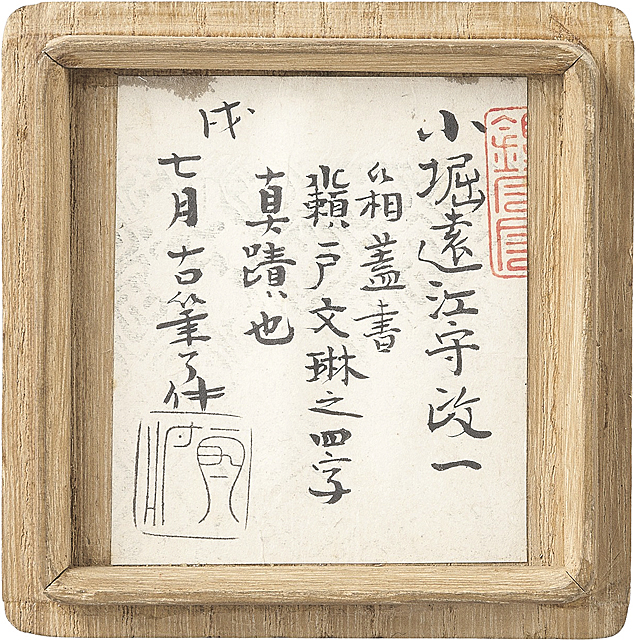 小堀遠江守政一
箱蓋書
瀬戸文琳之四字
真蹟也
戌
七月古筆了仲